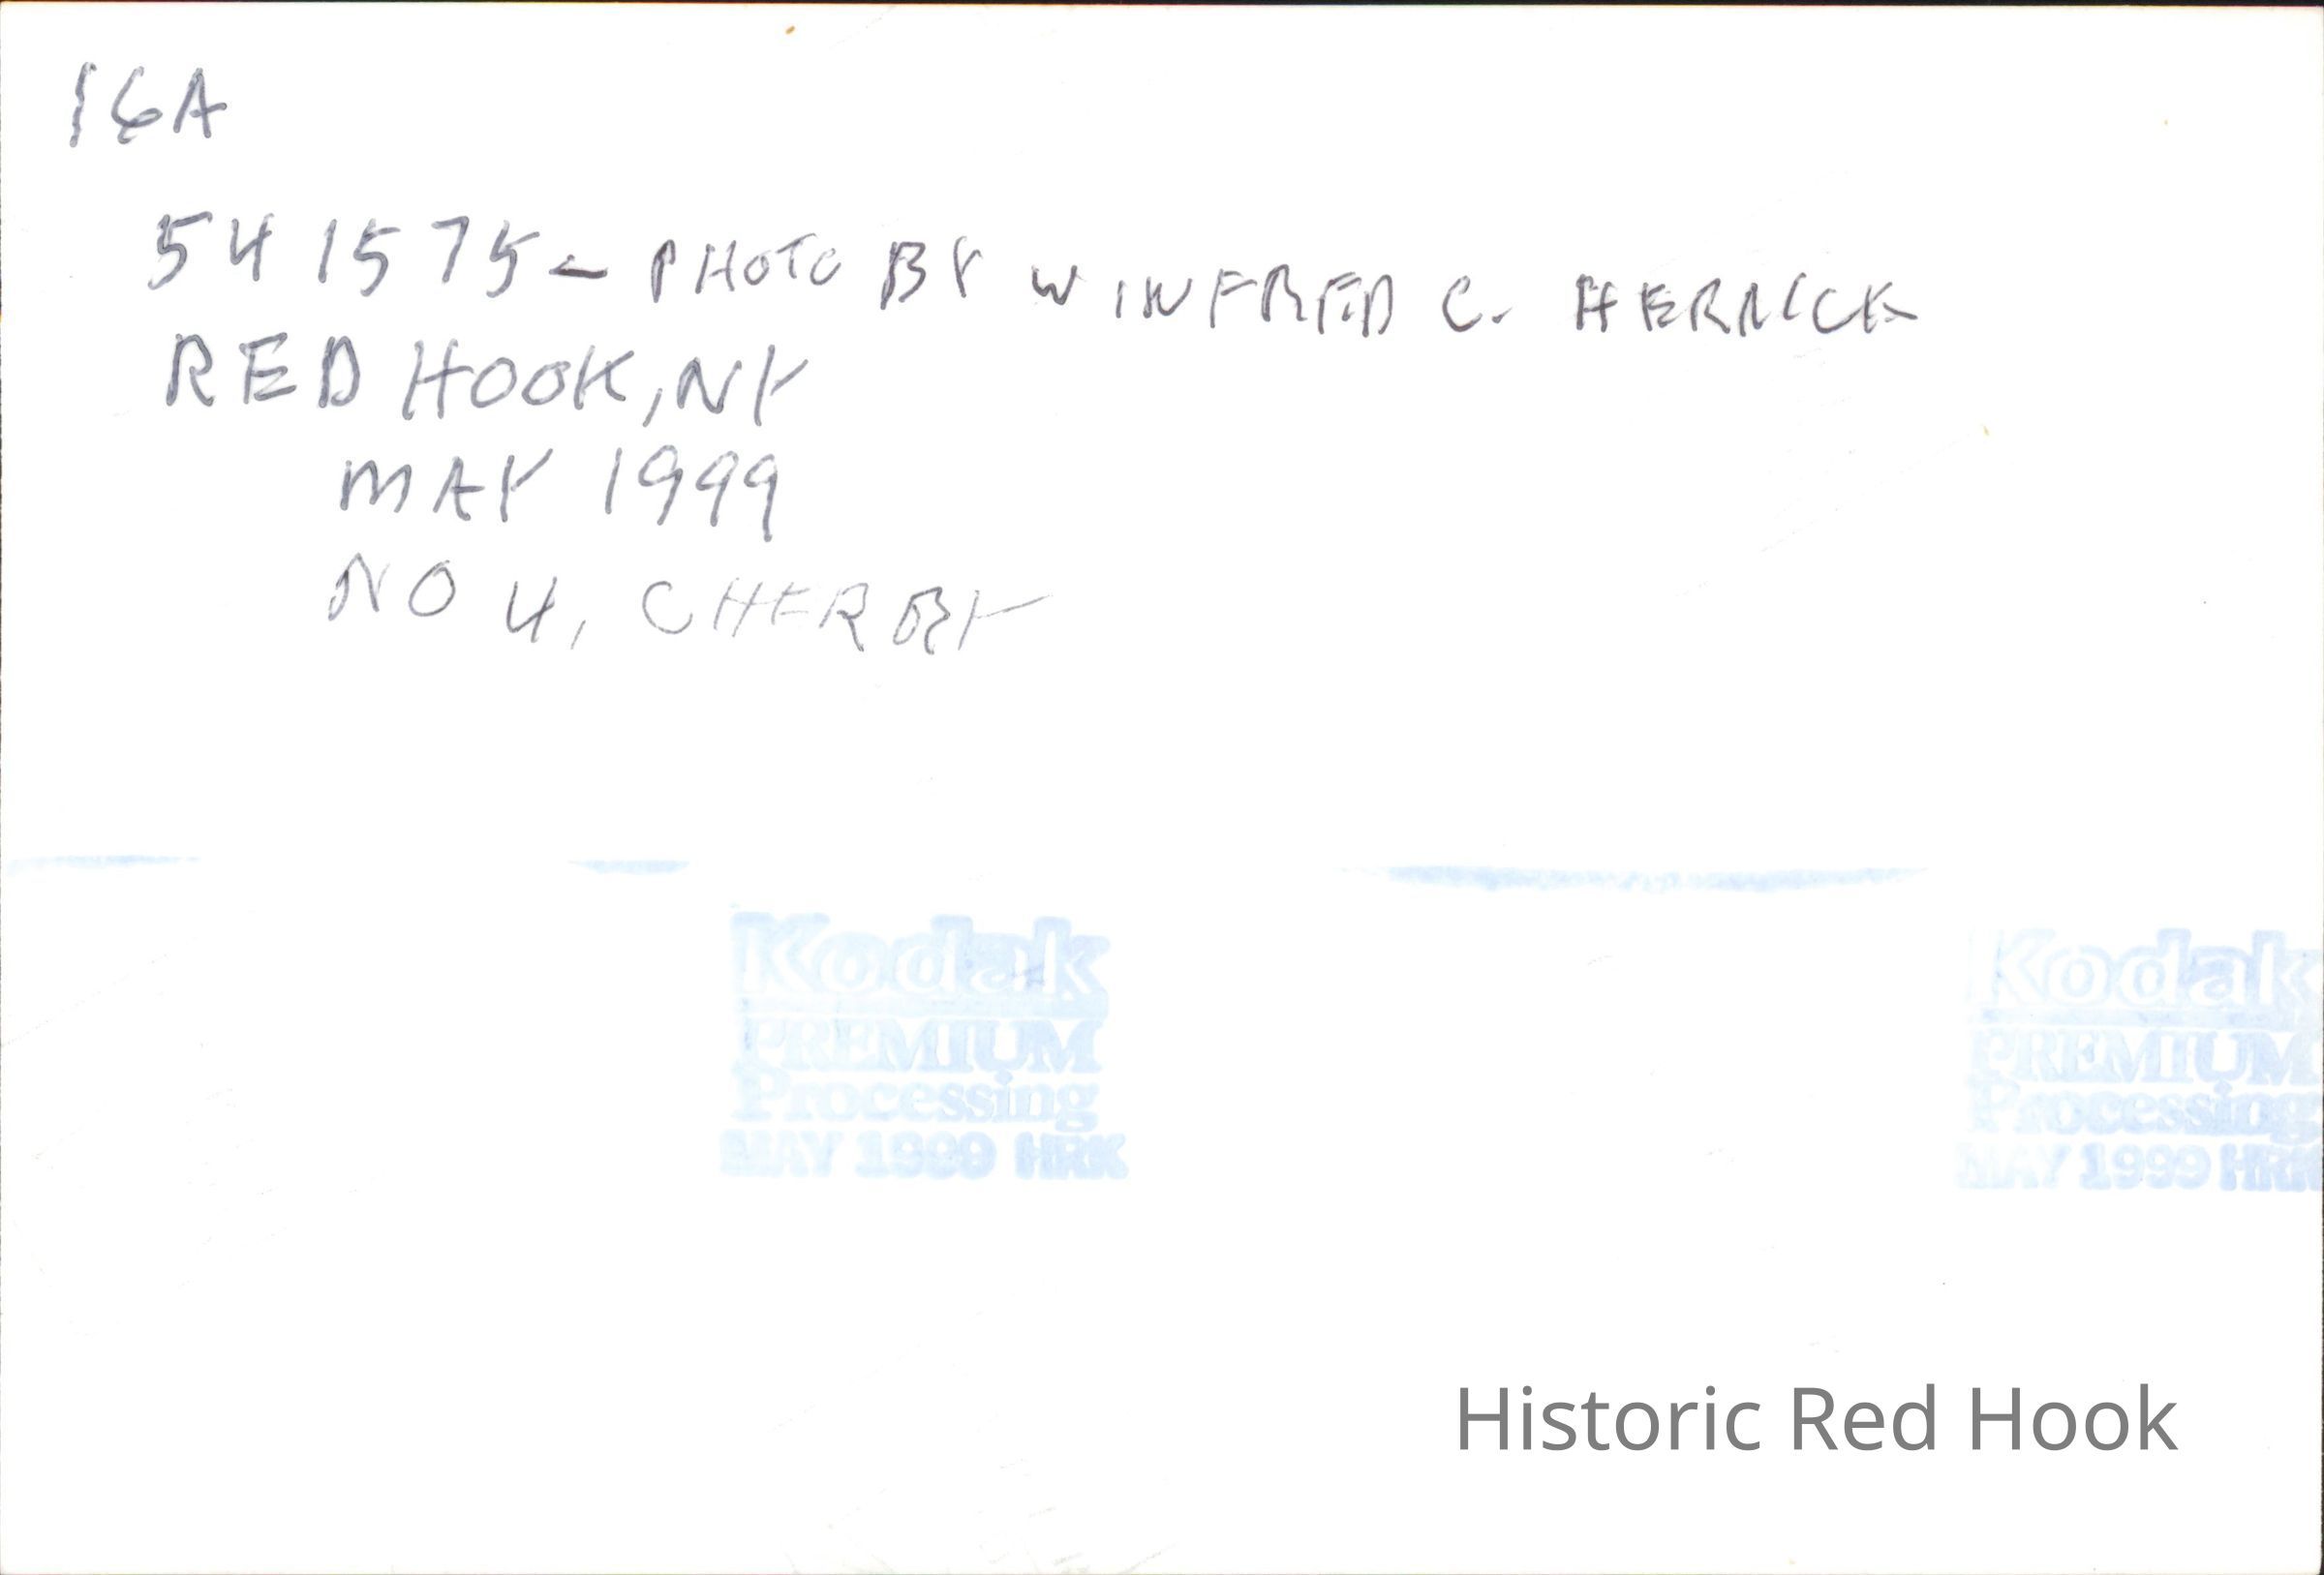 16A
541575 - PHOTO BY WINFRED C. HERRICK
RED HOOK, NY
MAY 1999
NO 4, CHERRY
Kodak
PREMIUM
Processing
MAY 1999 HRK
Kodak
PREMIUM
Processing
MAY 1999 HRK
Historic Red Hook